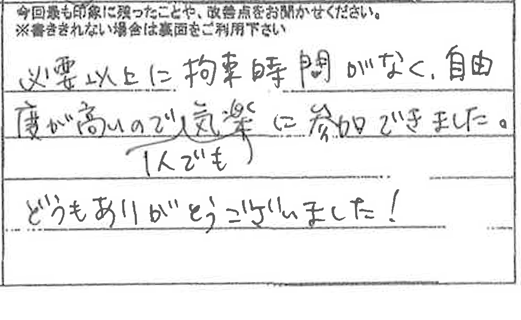 今回最も印象に残ったことや、改善点をお聞かせください。
※書ききれない場合は裏面をご利用下さい
必要以上に拘束時間がなく、自由
度が高いので気楽に参加できました。
1人でも
どうもありがとうございました!